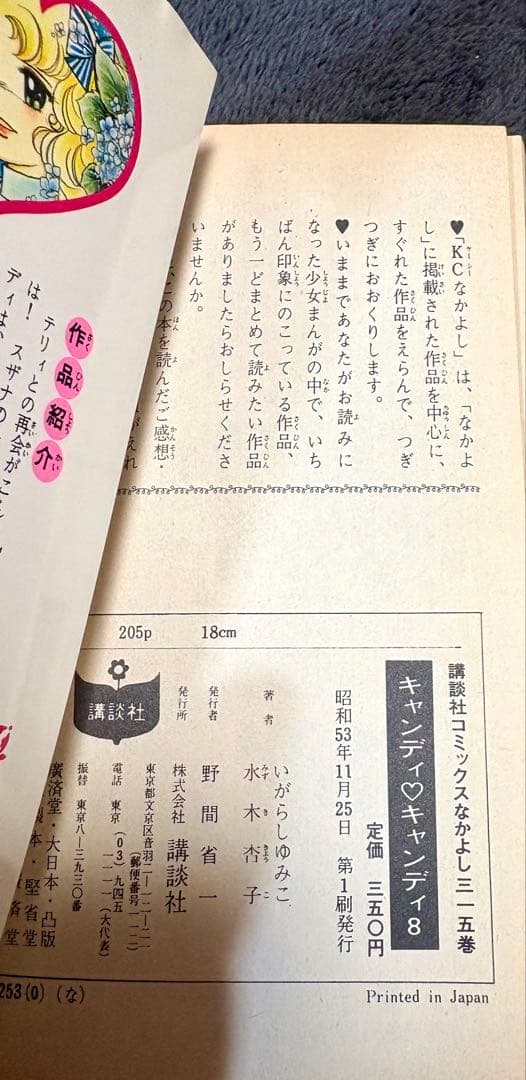 ♥「KCなかよし」は、「なかよ
し」に掲載された作品を中心に、
すぐれた作品をえらんで、つぎ
つぎにおおくりします。
♥いままであなたがお読みに
なった少女まんがの中で、いち
ばん印象にのこっている作品、
もう一どまとめて読みたい作品
がありましたらおしらせくださ
いませんか。
この本を読んだご感想・
作品紹介
テリィとの再会が
は！スザナの
ディは、
205p 18cm
講談社コミックスなかよし三一五巻
キャンディ♡キャンディ8
定価 三五〇円
昭和53年11月25日 第1刷発行
著者 いがらしゆみこ
水木杏子
発行者 野間省一
発行所 株式会社 講談社
東京都文京区音羽二—一二—二一
(郵便番号一一二)
電話 東京(03)九四五
一一一一(大代表)
振替 東京八—三九三〇番
廣済堂・大日本・凸版
製本・堅省堂
講談社
253(0)(な)
Printed in Japan